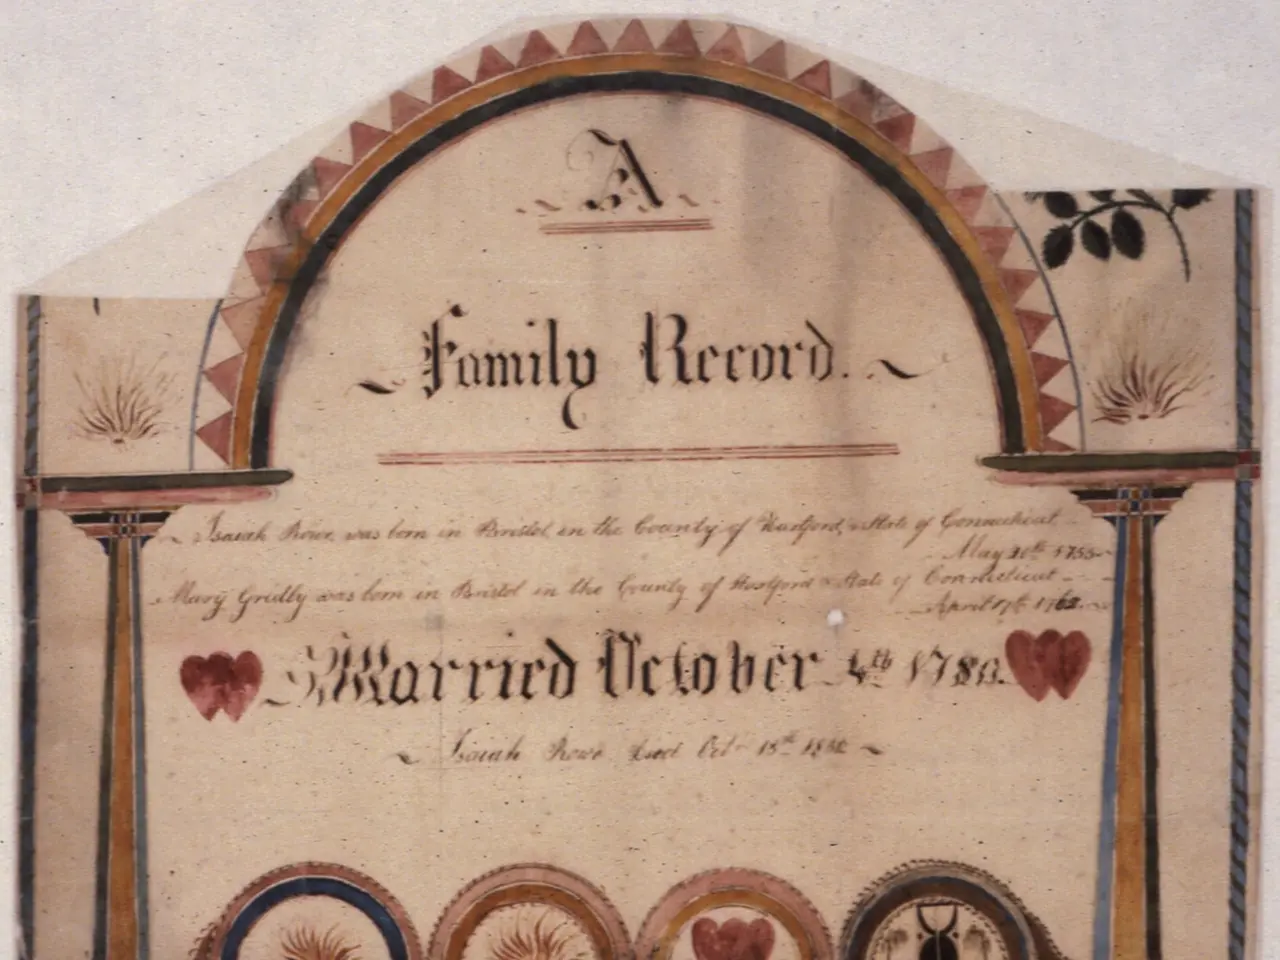 A
Family Record.
Isaiah Rowe was born in Bristol in the County of Hartford & State of Connecticut
May 20th 1755
Mary Gridly was born in Bristol in the County of Hartford & State of Connecticut
April 17th
Married October 4th 1780.
Isaiah Rowe Died Oct 15th